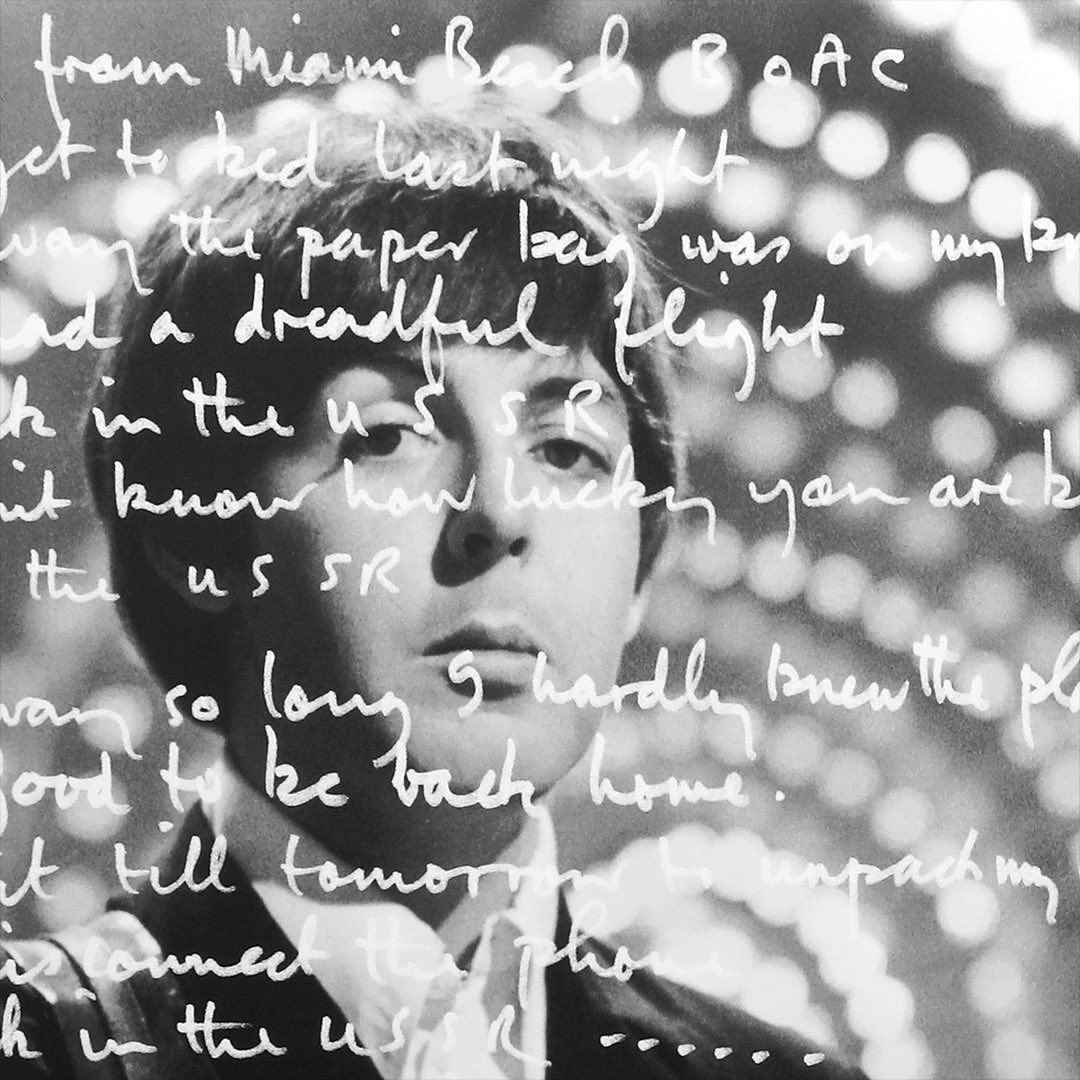 from Miami Beach B O A C
get to bed last night
way the paper bag was on my kn
ad a dreadful flight
k in the U S S R
n't know how lucky you are b
the U S S R
way so long I hardly knew the pla
good to be back home.
it till tomorrow to unpack my
isconnect the phone
k in the U S S R ......